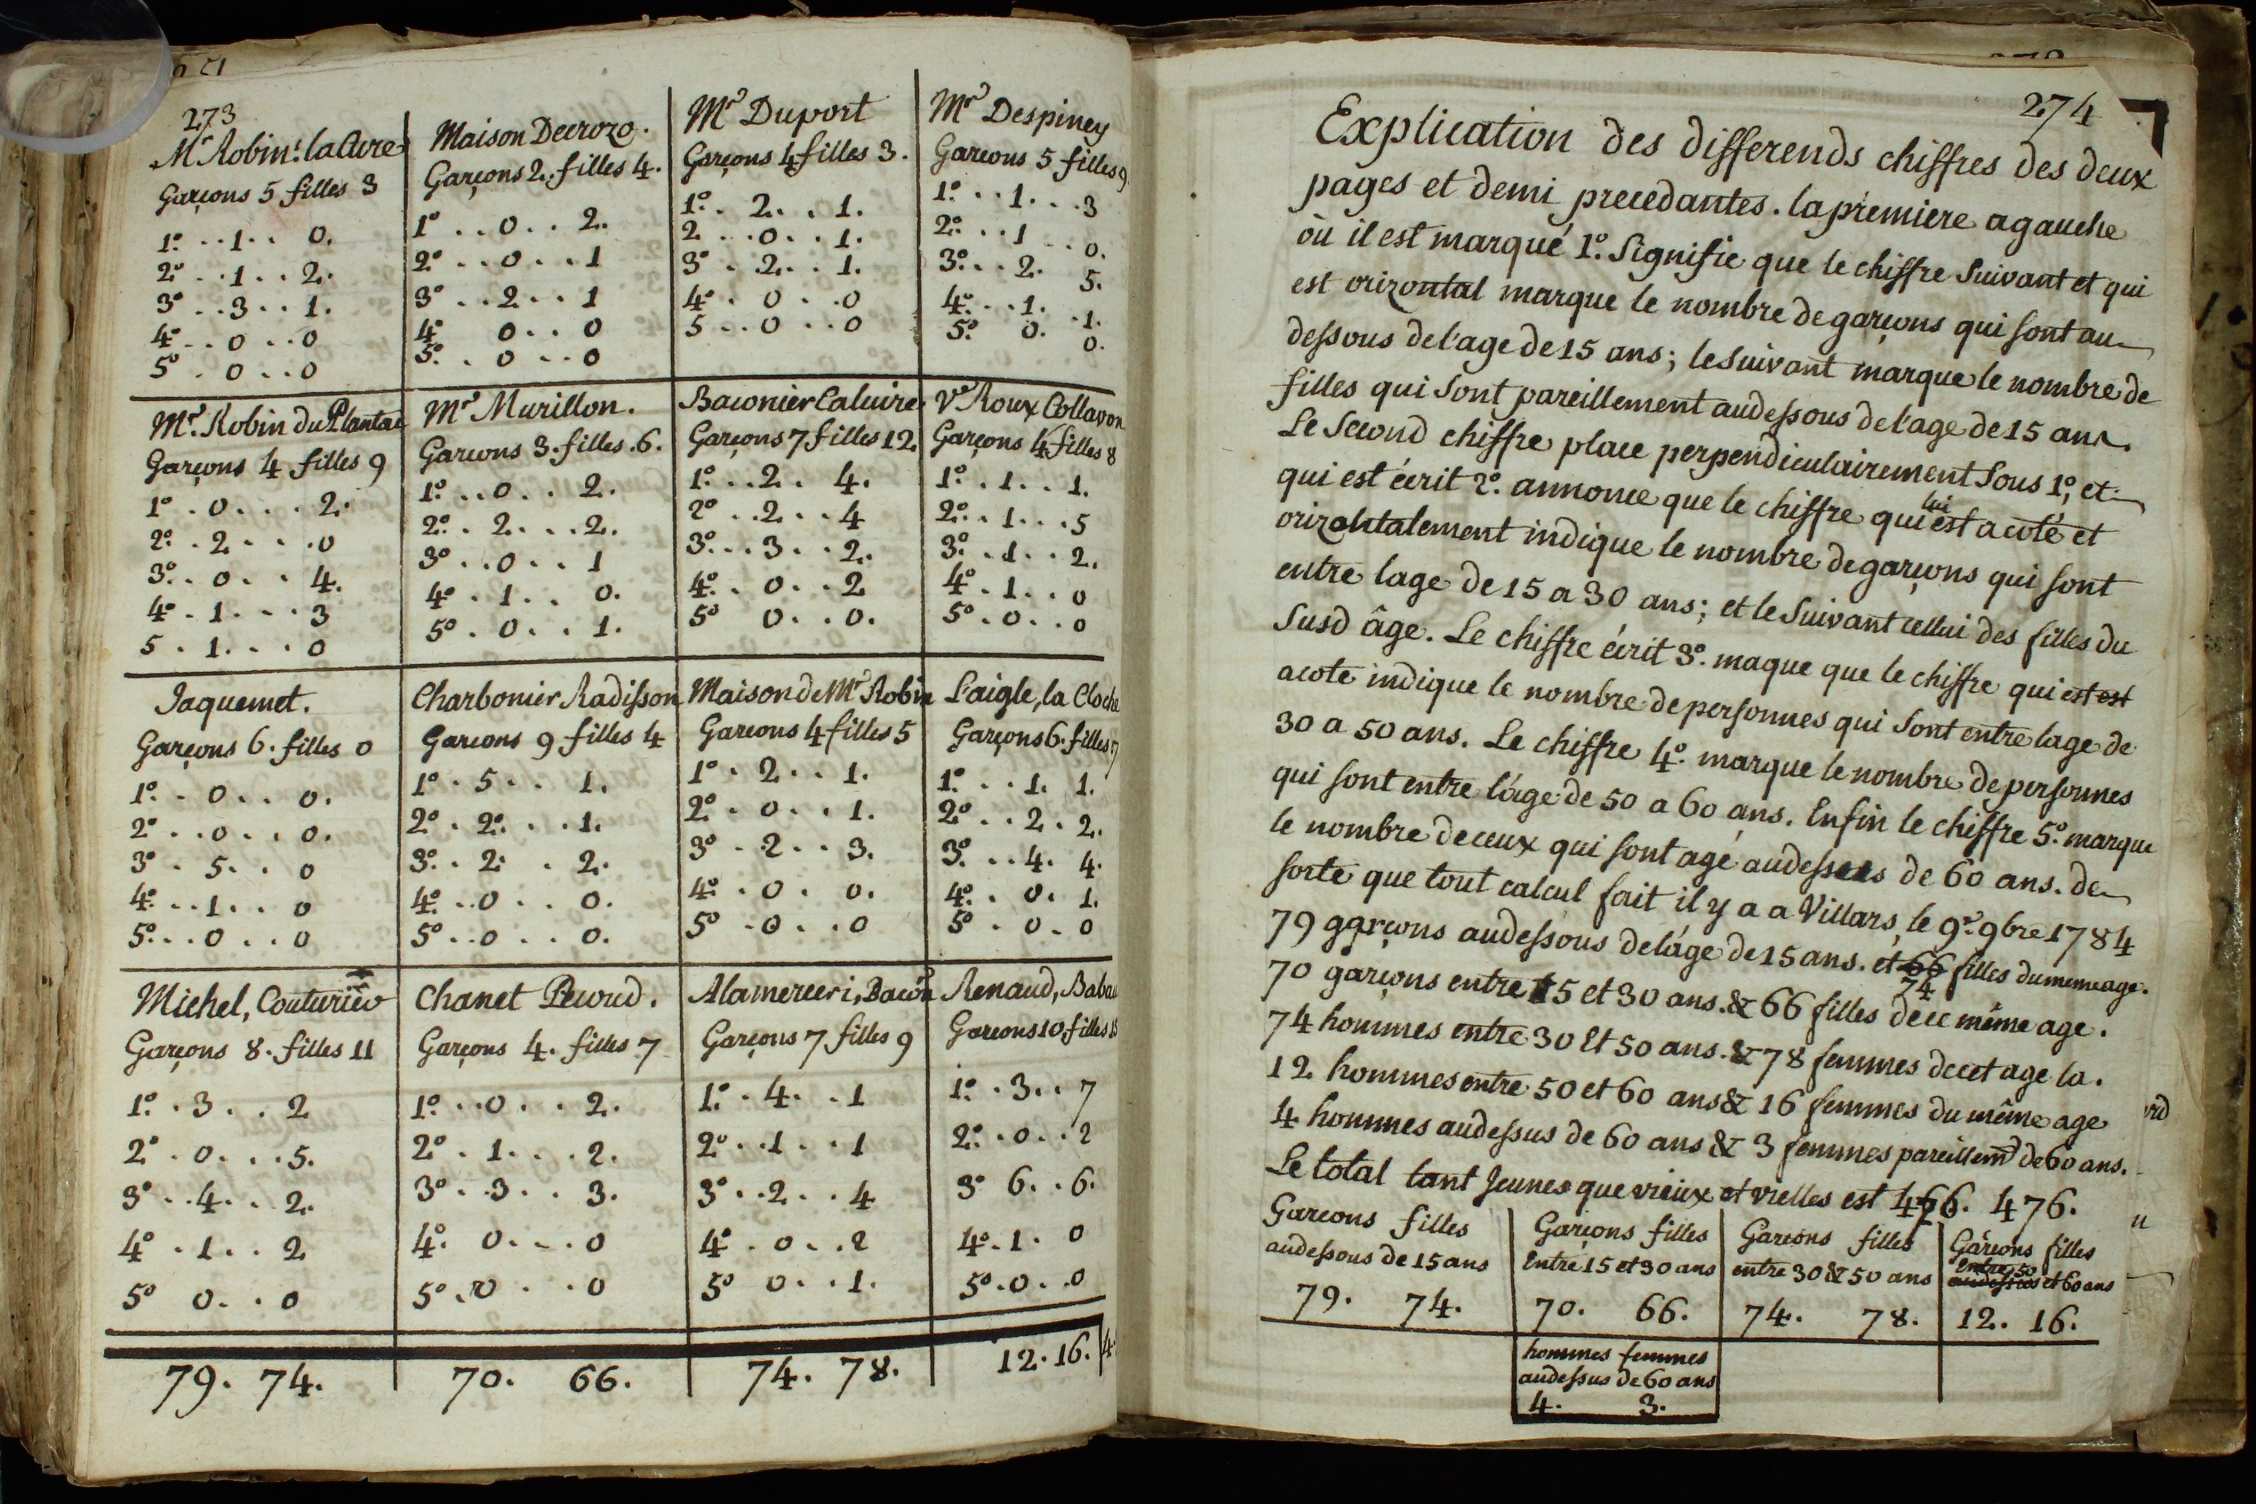 273
Mr Robin: la Cure
Garçons 5 filles 3
1º. . . 1 . . 0.
2º . . 1 . . 2.
3º . . 3 . . 1.
4º . . 0 . . 0
5º . 0 . . 0
Maison Decrozo.
Garçons 2. filles 4.
1º . . 0 . . 2.
2º . . 0 . . 1
3º . . 2 . . 1
4º 0 . . 0
5º. . 0 . . 0
Mr Duport
Garçons 4 filles 3.
1º. . 2. . . 1.
2 . . 0 . . 1.
3º . 2. . . 1.
4º. 0 . . 0
5 . . 0 . . 0
Mr Despiney
Garcons 5 filles 9
1º. . . 1. . . 3
2º. . . 1 . . 0.
3º. . . 2. 5.
4º. . . 1. . 1.
5º. 0. 0.
Mr. Robin du Plantae
Garçons 4 filles 9
1º . 0 . . . 2.
2º. . 2 . . . 0
3º. . 0 . . 4.
4º . 1 . . . 3
5 . 1 . . . 0
Mr Murillon.
Garcons 3. filles . 6.
1º. . . 0 . . 2.
2º. . 2. . . . 2.
3º . . 0 . . 1
4º . 1 . . 0.
5º . 0 . . 1.
Baconier Caluire
Garçons 7 filles 12.
1º. . . 2. . 4.
2º . . 2 . . 4
3º. . . 3 . . 2.
4º. . 0 . . 2
5º 0 . . 0.
Ve Roux Collavon
Garçons 4 filles 8
1º. . 1 . . 1.
2º. . 1 . . . 5
3º. . 1 . . 2.
4º . 1 . . 0
5º . 0 . . 0
Jaquemet.
Garçons 6. filles 0
1º. . 0 . . 0.
2º . . 0 . . 0.
3º . 5. . . 0
4º. . . 1 . . 0
5º. . . 0 . . 0
Charbonier Radisson
Garcons 9 filles 4
1º . 5 . . 1.
2º . 2. . . . 1.
3º. . 2 . . 2.
4º. . . 0 . . 0.
5º . . 0 . . 0.
Maison de Mr Robin
Garcons 4 filles 5
1º . 2 . . 1.
2º . 0 . . 1.
3º . 2 . . 3.
4º. . 0 . 0.
5º . 0 . . 0
L'aigle, la Cloche
Garçons 6. filles 7
1º. . . 1. 1.
2º . . 2 . 2.
3º. . . 4. 4.
4º. . 0. 1.
5º . 0 . 0
Michel, Couturier
Garçons 8. filles 11
1º. . 3 . . 2
2º . 0 . . . 5.
3º . . 4. . . 2.
4º . 1 . . 2
5º 0. . . 0
Chanet Pecoud.
Garçons 4. filles 7
1º. . . 0 . . 2.
2º . 1 . . . 2.
3º . . 3 . . 3.
4º. 0 . . . 0
5º . 0 . . . 0
Alamerceri, Bacon
Garçons 7 filles 9
1º. . 4. . . 1
2º . . 1 . . 1
3º . . 2 . . 4
4º . 0 . . 2
5º 0 . . 1.
Renaud, Babau
Garcons 10 filles 15
1º. . 3. . . 7
2º. . 0 . . 2
3º 6. . . 6.
4º . 1 . 0
5º . 0 . . 0
79. 74. 70. 66. 74. 78. 12. 16. 4.
274
Explication des differends chiffres des deux
pages et demi precedantes. la premiere a gauche
où il est marqué 1º. Signifie que le chiffre Suivant et qui
est orizontal marque le nombre de garçons qui sont au
dessous de l'age de 15 ans; le Suivant marque le nombre de
filles qui Sont pareillement audessous de l'age de 15 ans.
Le Second chiffre place perpendiculairement Sous 1º, et
qui est écrit 2º. annonce que le chiffre qui lui est a coté et
orizontalement indique le nombre de garçons qui sont
entre lage de 15 a 30 ans; et le Suivant cellui des filles du
Susd âge. Le chiffre écrit 3º. maque que le chiffre qui est est
acote indique le nombre de personnes qui Sont entre lage de
30 a 50 ans. Le chiffre 4º. marque le nombre de personnes
qui sont entre l'áge de 50 a 60 ans. Enfin le chiffre 5º. marque
le nombre de ceux qui sont agé audessus de 60 ans. de
sorte que tout calcul fait il y a a Villars, le 9e. 9bre 1784
79 garçons audessous de l'áge de 15 ans. et 66 74 filles du meme age.
70 garçons entre 15 et 30 ans. & 66 filles de ce même age.
74 hommes entre 30 et 50 ans. & 78 femmes de cet age la.
12 hommes entre 50 et 60 ans & 16 femmes du même age
4 hommes audessus de 60 ans & 3 femmes pareillemt de 60 ans.
Le total tant Jeunes que vieux et vielles est 466. 476.
Garcons filles
audessous de 15 ans
79. 74.
Garçons filles
entre 15 et 30 ans
70. 66.
Garcons filles
entre 30 & 50 ans
74. 78.
Garçons filles
entre 50
et 60 ans
12. 16.
hommes femmes
audessus de 60 ans
4. 3.